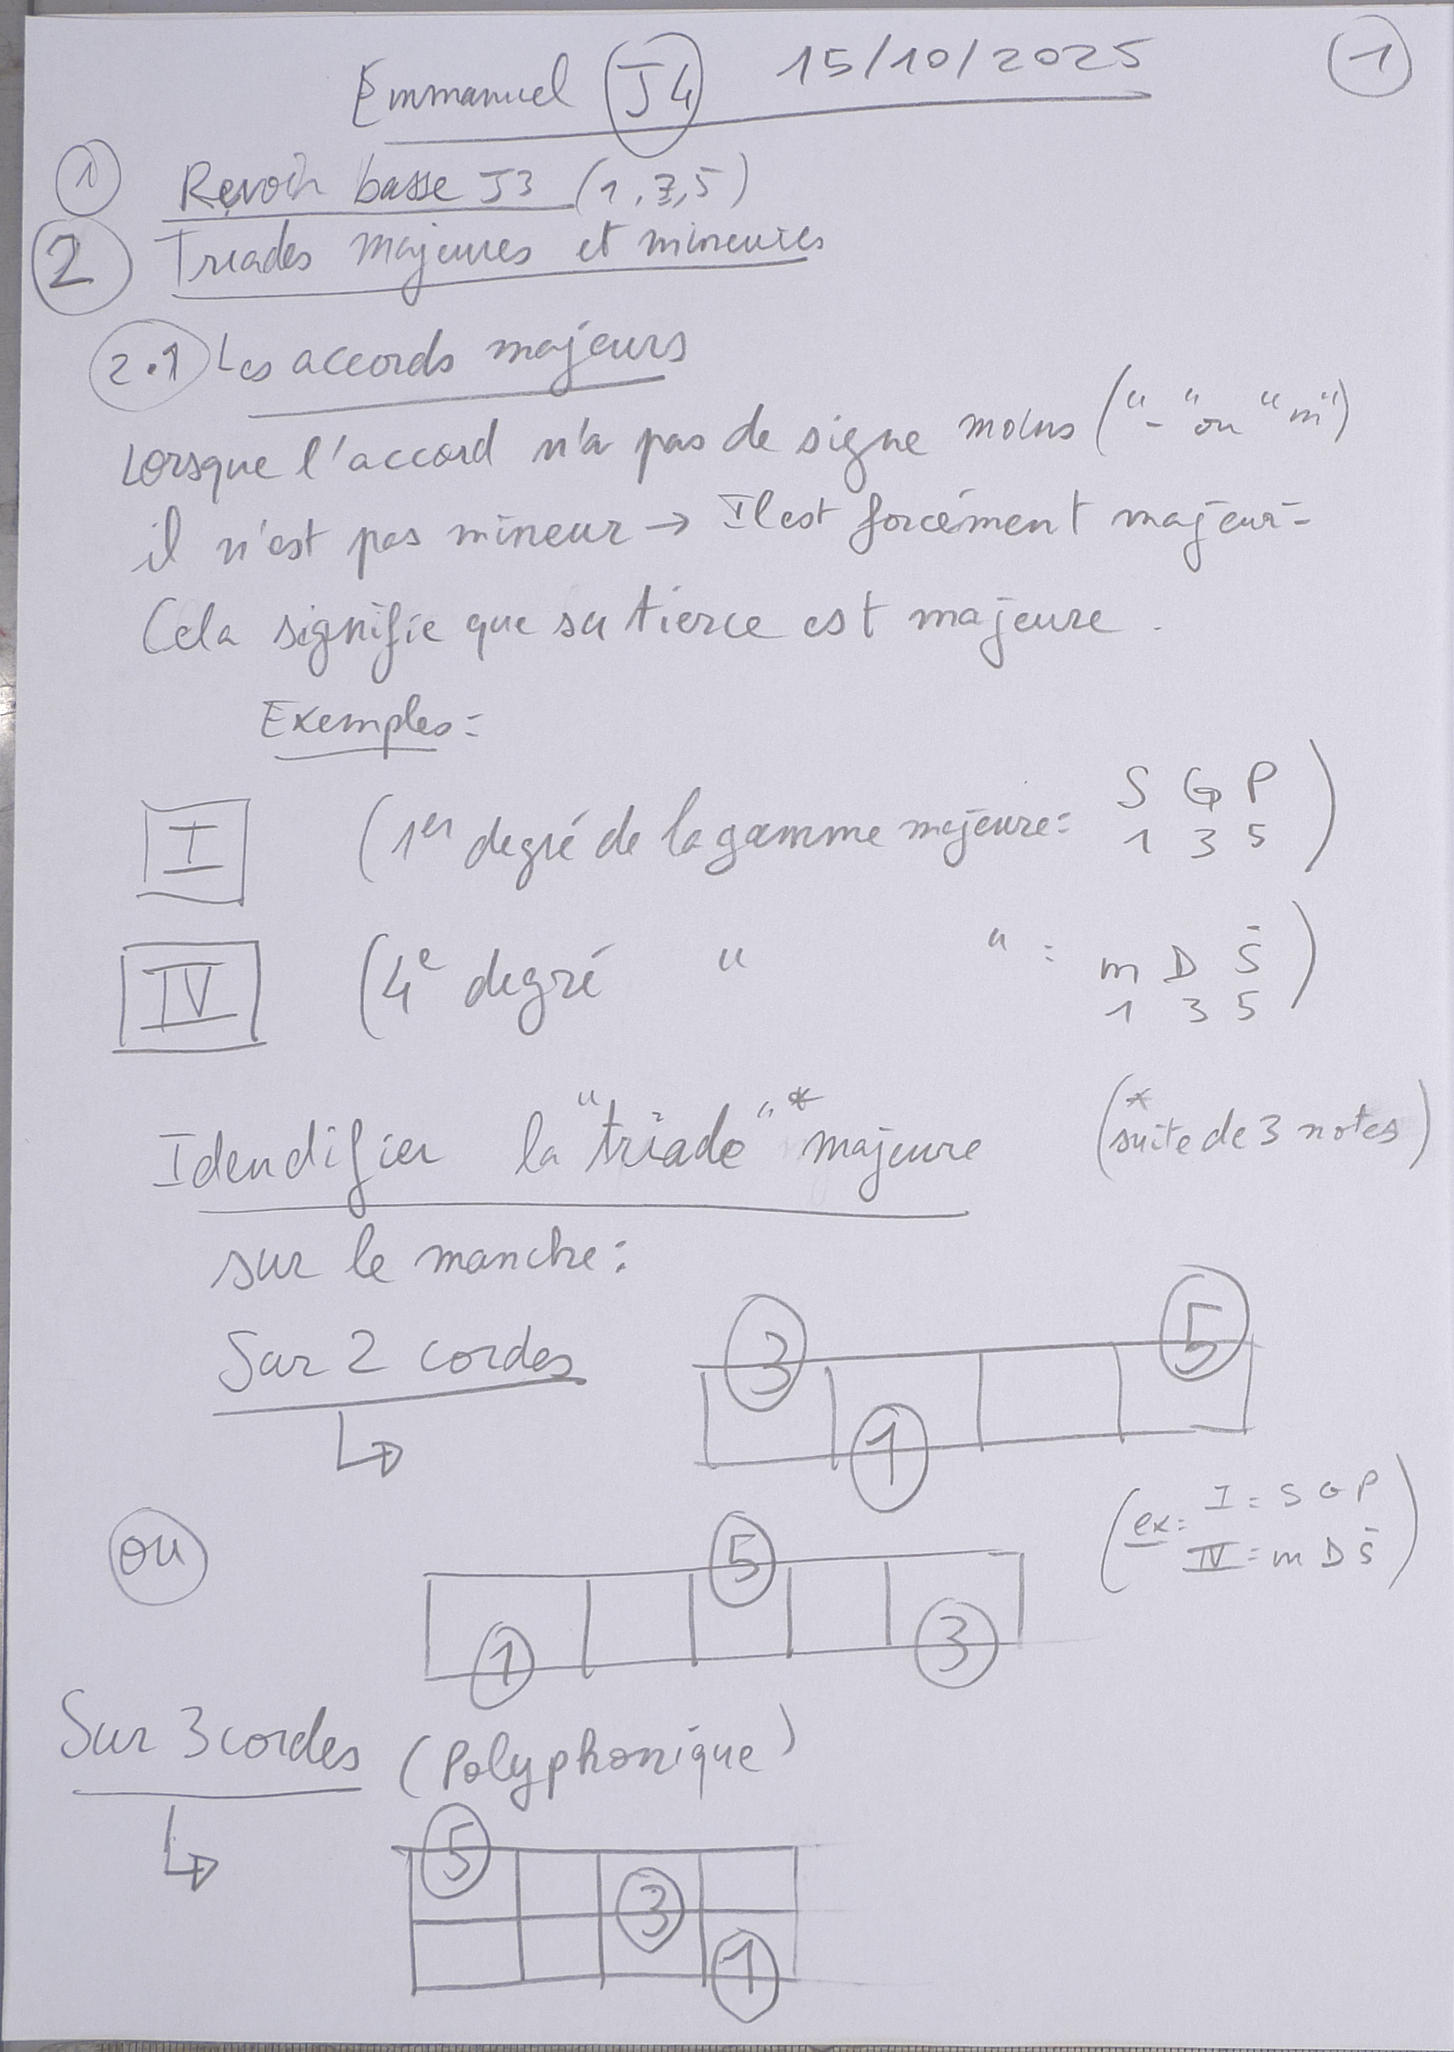 Emmanuel J4 15/10/2025 1
1 Revoir basse J3 (1, 3, 5)
2 Triades majeures et mineures
2.1 Les accords majeurs
Lorsque l'accord n'a pas de signe moins ("-" ou "m")
il n'est pas mineur → Il est forcément majeur.
Cela signifie que sa tierce est majeure.
Exemples:
I (1er degré de la gamme majeure: S G P
1 3 5)
IV (4e degré " " : m D S̄
1 3 5)
Idendifier la "triade"* majeure (* suite de 3 notes)
sur le manche:
Sur 2 cordes
3 5
1
(ex: I = S G P
IV = m D S̄)
ou
5
1 3
Sur 3 cordes (Polyphonique)
5
3
1